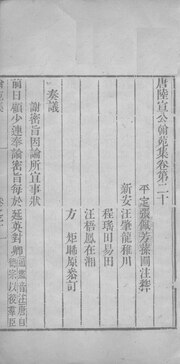 唐陸宣公翰苑集卷第二十
平定張佩芳蓀圃注釋
新安汪肇龍稚川
程瑤田易田
汪梧鳳在湘
方 矩晞原參訂
奏議
謝密旨因論所宣事狀
前日顧少連奉諭密旨每於延英對卿